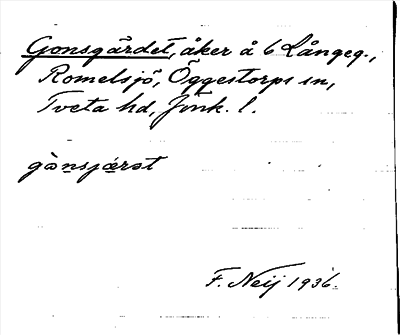 Gonsgärdet, åker å 6 Långeg.,
Romelsjö, Öggestorps sn,
Tveta hd, Jönk. l.
gònsjæ̀rət
F. Neij 1936.